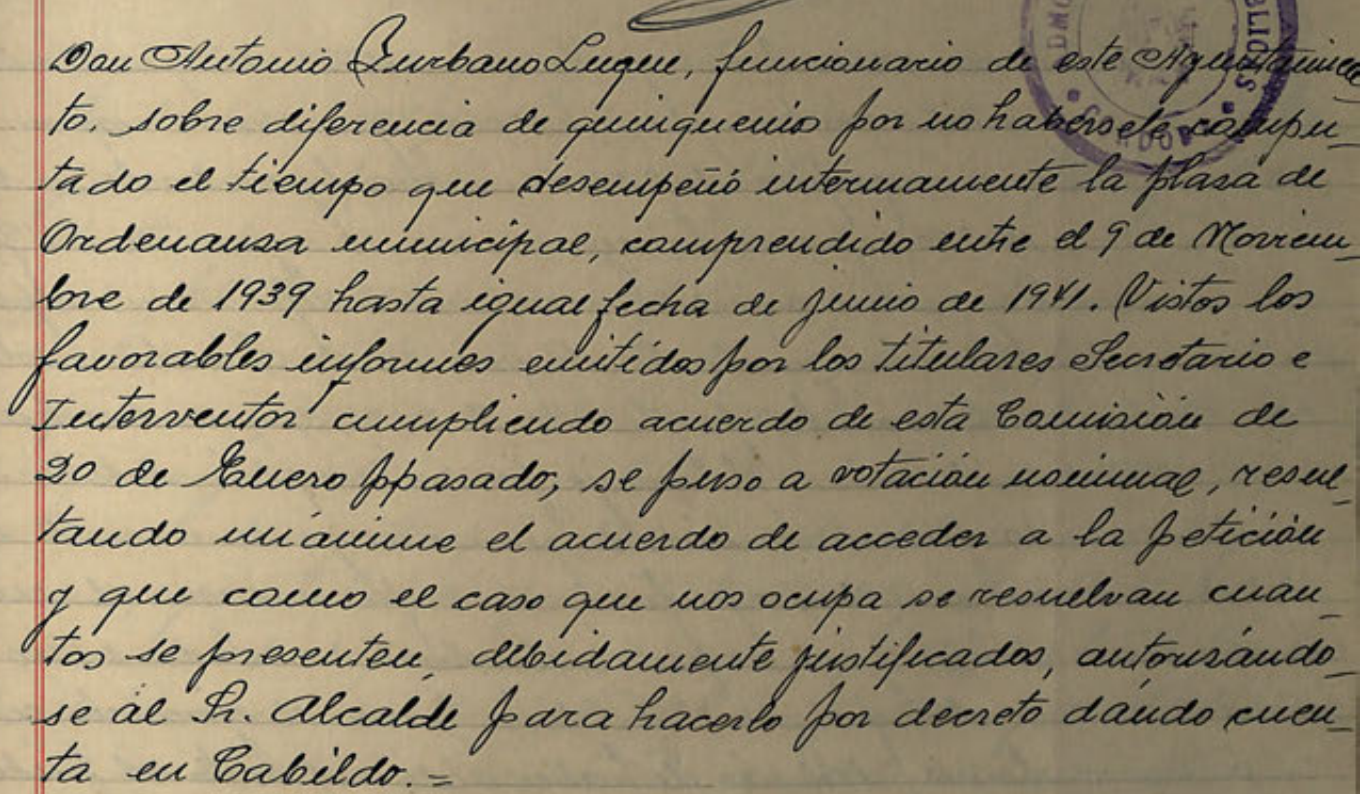 Don Antonio Zurbano Luque, funcionario de este Ayuntamien
to, sobre diferencia de quinquenio por no habersele compu_
tado el tiempo que desempeñó internamente la plasa de
Ordenansa municipal, comprendido entre el 9 de Noviem_
bre de 1939 hasta igual fecha de junio de 1941. Vistos los
favorables informes emitidos por los titulares Secretario e
Interventor cumpliendo acuerdo de esta Comisión de
20 de Enero ppasado, se puso a votación nominal, resul_
tando unánime el acuerdo de acceder a la petición
y que como el caso que nos ocupa se resuelvan cuan_
tos se presenten, debidamente justificados, autorisándo_
se al Sr. Alcalde para hacerlo por decreto dándo cuen_
ta en Cabildo.=